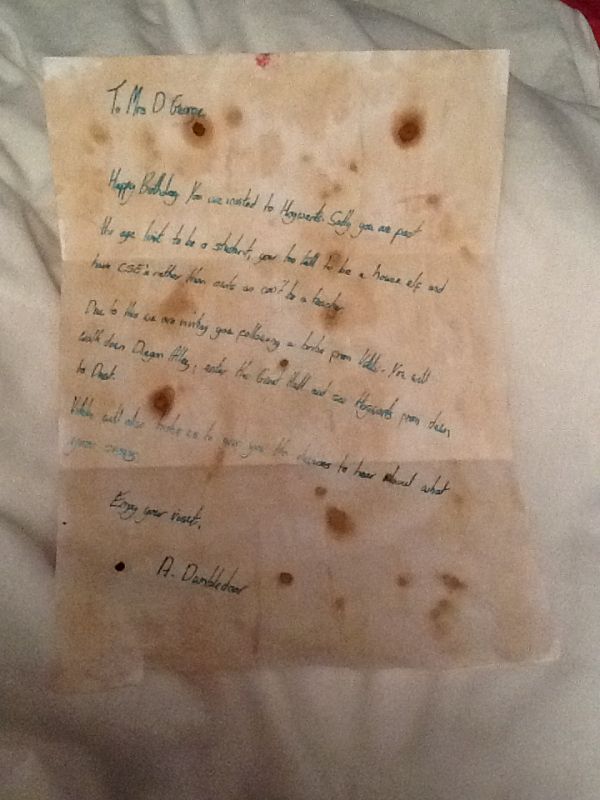 To Mrs D George
Happy Birthday. You are invited to Hogwarts. Sadly you are past
the age limit to be a student, your too tall to be a house elf and
have CSE's rather than owls so can't be a teacher
Due to this we are inviting you following a bribe from Vikki. You will
walk down Diagon Alley, enter the Great Hall and see Hogwarts from dawn
to Dusk.
will also us to give you the to hear about what
your
Enjoy your visit.
A. Dumbledoor